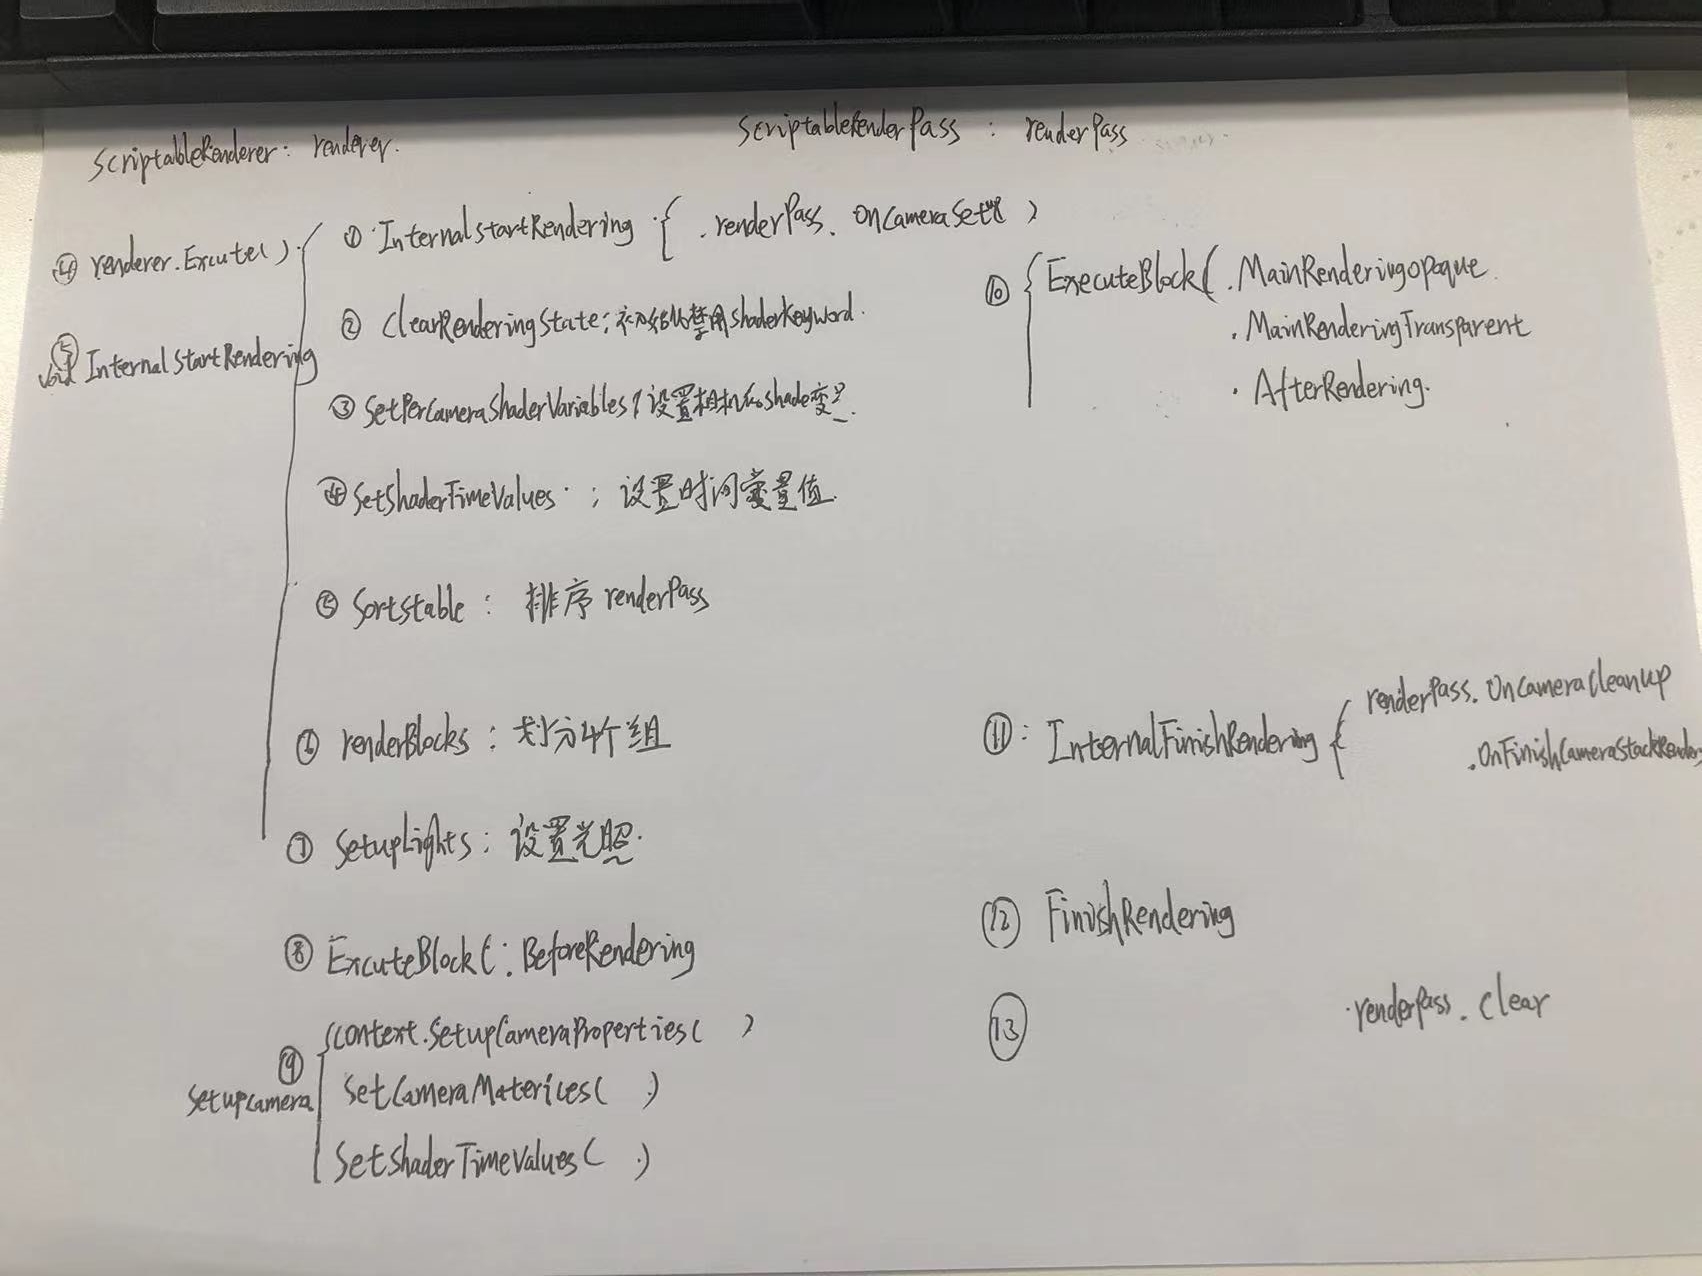 ScriptableRenderer: renderer.
ScriptableRenderPass : renderPass
④ renderer.Excute( ).
⑤ void InternalStartRendering
① InternalStartRendering { .renderPass. OnCameraSetup )
② ClearRenderingState; 初始化禁用shaderkeyword.
③ SetPerCameraShaderVariables; 设置相机和shade变量.
④ SetShaderTimeValues ; 设置时间变量值.
⑤ Sortstable : 排序 renderPass
⑥ renderBlocks : 划分4个组
⑦ SetupLights: 设置光照.
⑧ ExcuteBlock(: BeforeRendering
⑨ SetupCamera
context.SetupCameraProperties( )
SetCameraMaterices( .)
SetShaderTimeValues( .)
⑩ { ExecuteBlock( .MainRenderingopaque.
.MainRenderingTransparent
. AfterRendering.
⑪: InternalFinishRendering { renderPass. OnCameraCleanup
.OnFinishCameraStackRendering
⑫ FinishRendering
⑬ renderPass. Clear